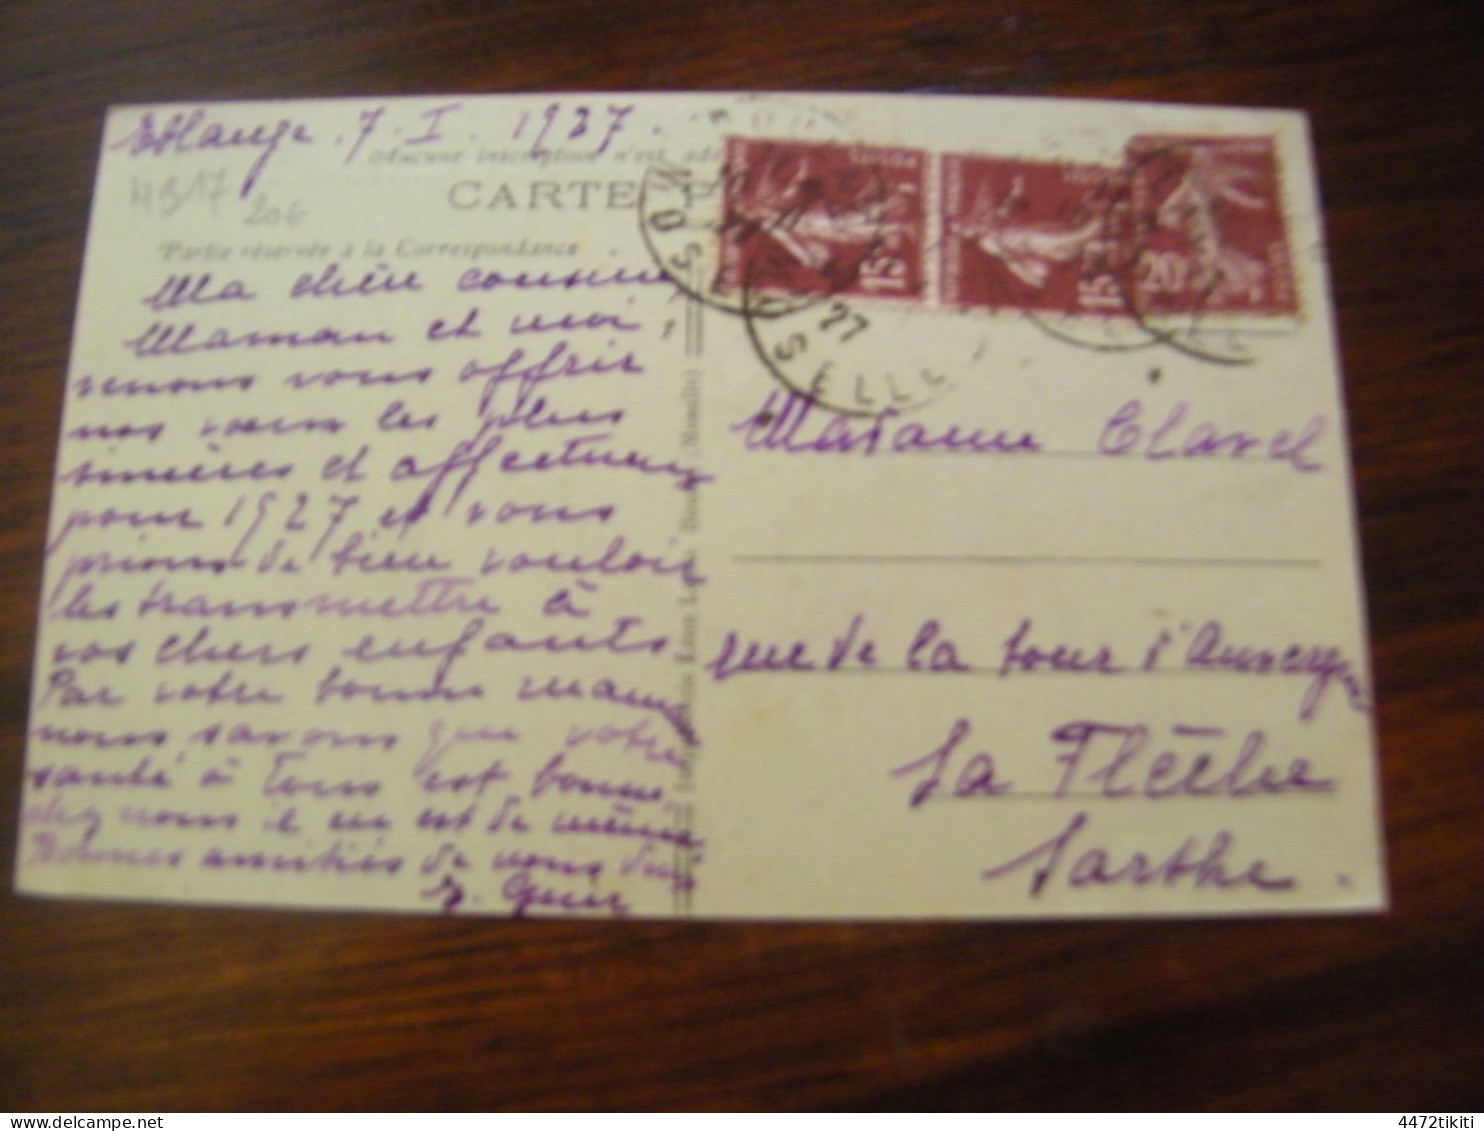 7. I. 1927.
Aucune inscription n'est
4317 206
CARTE P
Partie réservée à la Correspondance
Ma chère cousine,
Maman et moi,
venons vous offrir
nos vœux les plus
sincères et affectueux
pour 1927 et vous
prions de bien vouloir
les transmettre à
vos chers enfants
Par votre bonne maman
nous savons que votre
santé à tous est bonne,
chez nous il en est de même
Bonnes amitiés de nous deux
POSTES
15c
POSTES
15c
20c
POSTES
MOSELLE
27
MOSELLE
Madame Clavel
rue de la tour d'Auvergne
La Flèche
Sarthe.
4472tikiti
www.delcampe.net